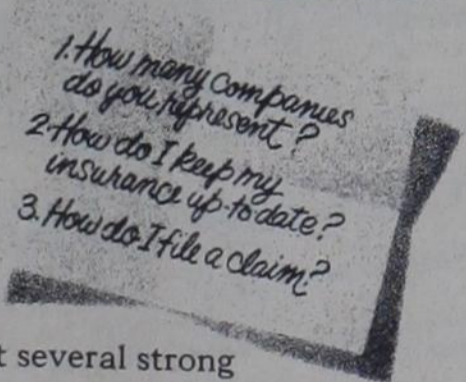 1. How many companies
do you represent?
2. How do I keep my
insurance up-to-date?
3. How do I file a claim?
several strong